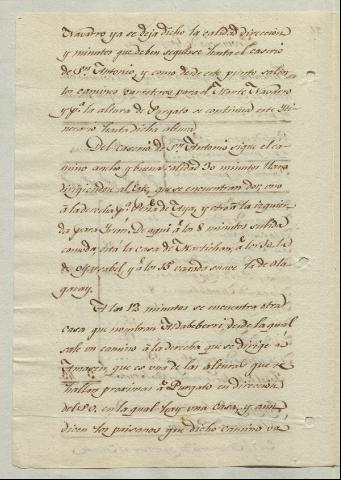 Navarro ya se dejo dicho la calidad direccion
y minutos que deben seguirse hasta el caserio
de Sn. Antonio, y como desde este punto salen
los caminos carreteros para el Monte Navarro
y pa. la altura de Purgato se continua este Iti-
nerario hasta dicha altura
Del caserio de Sn. Antonio sigue el ca-
mino ancho y buena calidad 30 minutos llano
dirigiendose al Este, que se encuentran dos, uno
á la derecha pa. Peña de Aya, y otro á la izquier-
da para Irun. De aqui á los 8 minutos subida
comoda, está la casa de á los 30 la
de y á los 35 vajada suave la de Ola-
garay.
A los 12 minutos se encuentra otra
casa que nombran Aldabeberri, desde la qual
sale un camino á la derecha que se dirige á
que es una de las alturas que se
hallan proximas á Purgato en direccion
del SO. en la qual hay una casa, y aun
dicen los paisanos que dicho camino vá